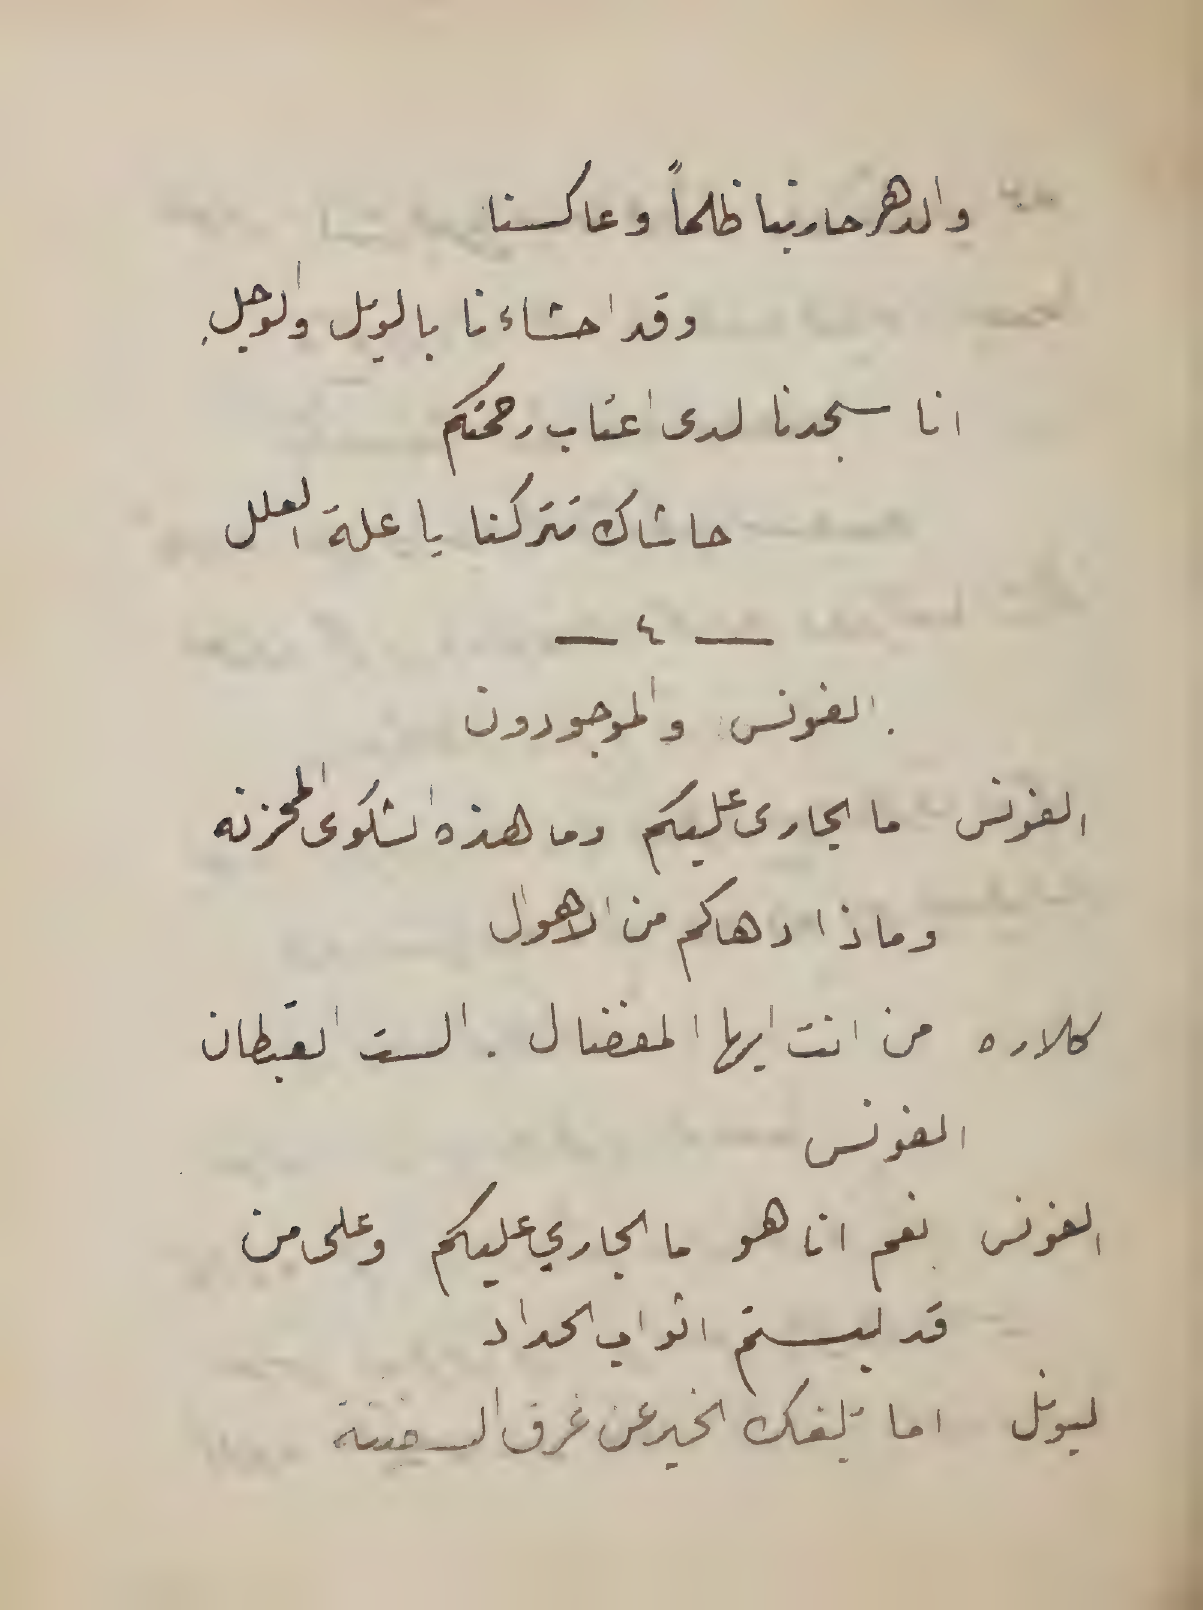 والدهر حاربنا ظلماً وعاكسنا
وقد احشاءنا بالويل والوجل
انا سجدنا لدى اعتاب رحمتكم
حاشاك تتركنا يا علة العلل
— ٤ —
الفونس والموجودون
الفونس ما الجارى عليكم وما هذه الشكوى المحزنه
وماذا دهاكم من الاهوال
كلاره من انت ايها المفضال . الست القبطان
الفونس
الفونس نعم انا هو ما الجاري عليكم وعلى من
قد لبستم اثواب الحداد
ليونل اما بلغك الخبر عن غرق السفينة